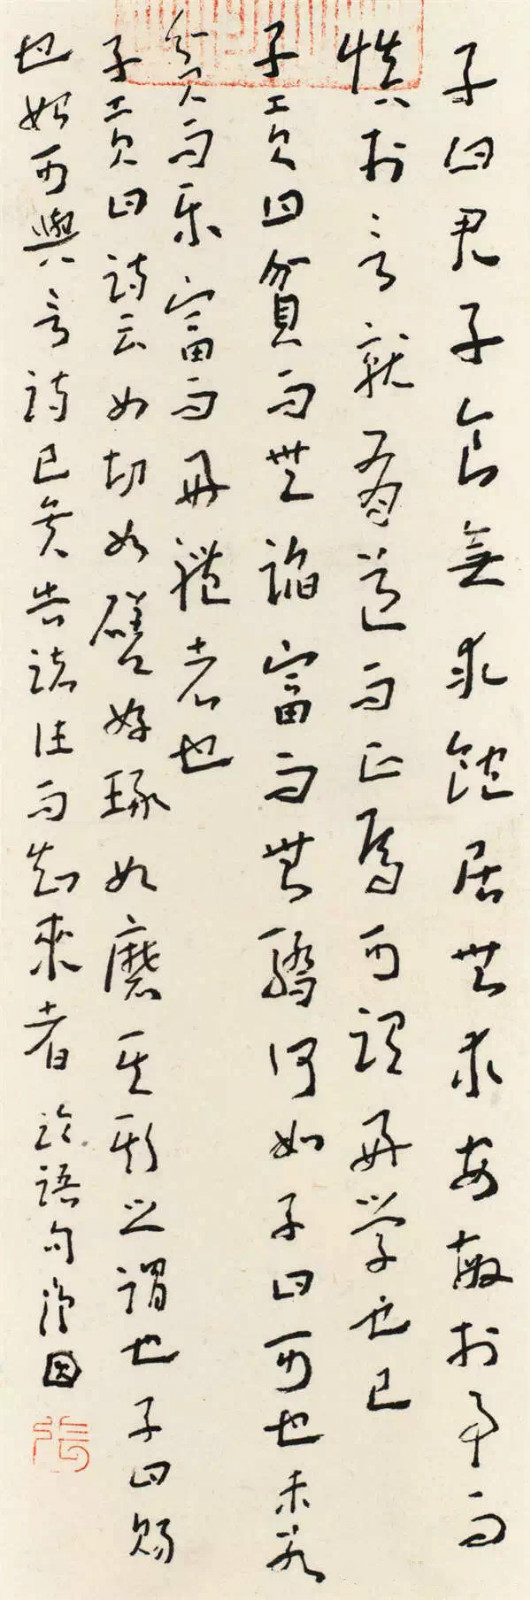 子曰君子食無求飽居無求安敏於事而
慎於言就有道而正焉可謂好學也已
子貢曰貧而無諂富而無驕何如子曰可也未若
貧而樂富而好禮者也
子貢曰詩云如切如磋如琢如磨其斯之謂也子曰賜
也始可與言詩已矣告諸往而知來者 論語句
張